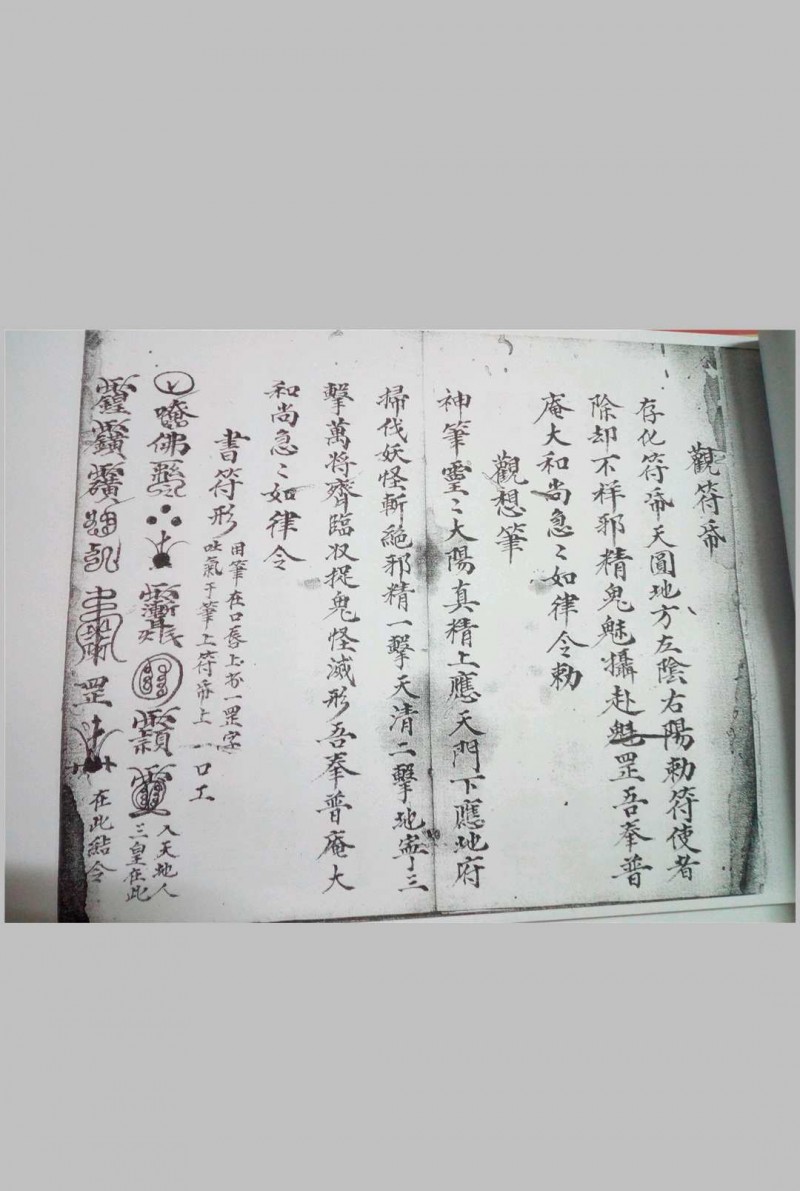 觀符帋
存化符帋天圓地方左陰右陽勅符使者
除却不祥邪精鬼魅攝赴魁罡吾奉普
庵大和尚急〻如律令勅
觀想筆
神筆靈〻大陽真精上應天門下應地府
掃伐妖怪斬絕邪精一擊天清二擊地寧三
擊萬將齊臨收捉鬼怪滅形吾奉普庵大
和尚急〻如律令
書符形
用筆在口唇上書一罡字
吐氣于筆上符帋上一口工
佛
入天地人
三皇在此
罡
在此結令